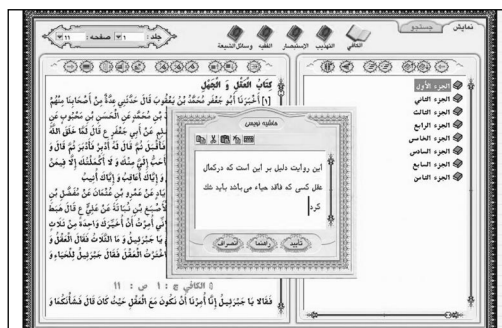 نمایش
جستجو
الکافي
التهذیب
الإستبصار
الفقیه
وسائل الشیعة
جلد : ١
صفحه : ١١
الجزء الأول
الجزء الثاني
الجزء الثالث
الجزء الرابع
الجزء الخامس
الجزء السادس
الجزء السابع
الجزء الثامن
كِتَابُ الْعَقْلِ وَ الْجَهْلِ
[١] أَخْبَرَنَا أَبُو جَعْفَرٍ مُحَمَّدُ بْنُ يَعْقُوبَ قَالَ حَدَّثَنِي عِدَّةٌ مِنْ أَصْحَابِنَا مِنْهُمْ
بْنُ مُحَمَّدٍ عَنِ الْحَسَنِ بْنِ مَحْبُوبٍ عَنِ
عَنْ أَبِي جَعْفَرٍ ع قَالَ لَمَّا خَلَقَ اللَّهُ
فَأَقْبَلَ ثُمَّ قَالَ لَهُ أَدْبِرْ فَأَدْبَرَ ثُمَّ قَالَ وَ
أَحَبُّ إِلَيَّ مِنْكَ وَ لَا أَكْمَلْتُكَ إِلَّا فِيمَنْ
وَ إِيَّاكَ أُعَاقِبُ وَ إِيَّاكَ أُثِيبُ
عَنْ عَمْرِو بْنِ عُثْمَانَ عَنْ مُفَضَّلِ بْنِ
بْنِ نُبَاتَةَ عَنْ عَلِيٍّ ع قَالَ هَبَطَ
إِنِّي أُمِرْتُ أَنْ أُخَيِّرَكَ وَاحِدَةً مِنْ ثَلَاثٍ
يَا جَبْرَئِيلُ وَ مَا الثَّلَاثُ فَقَالَ الْعَقْلُ وَ
اخْتَرْتُ الْعَقْلَ فَقَالَ جَبْرَئِيلُ لِلْحَيَاءِ وَ
الكافي ج : ١ ص : ١١
فَقَالَا يَا جَبْرَئِيلُ إِنَّا أُمِرْنَا أَنْ نَكُونَ مَعَ الْعَقْلِ حَيْثُ كَانَ قَالَ فَشَأْنَكُمَا وَ
حاشیه نویسی
این روایت دلیل بر این است که درکمال
عقل کسی که فاقد حیاء می باشد باید شک
کرد
تأیید
راهنما
انصراف